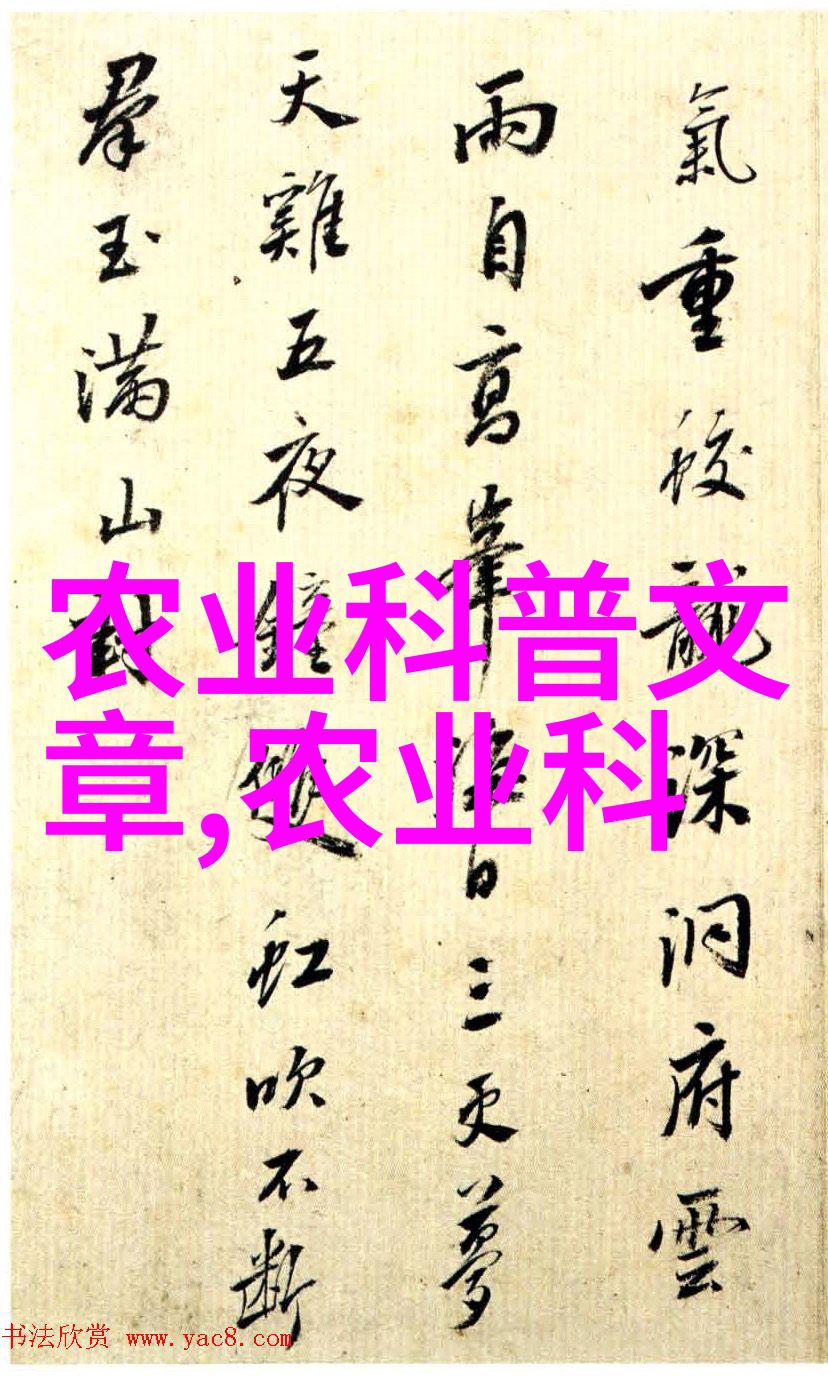 氣重蛟龍深洞府雲
雨自高峯日三更夢
天雞五夜鐘雙虹吹不斷
羣玉滿山
农业科普文
章,农业科
书法欣赏 www.yac8.com